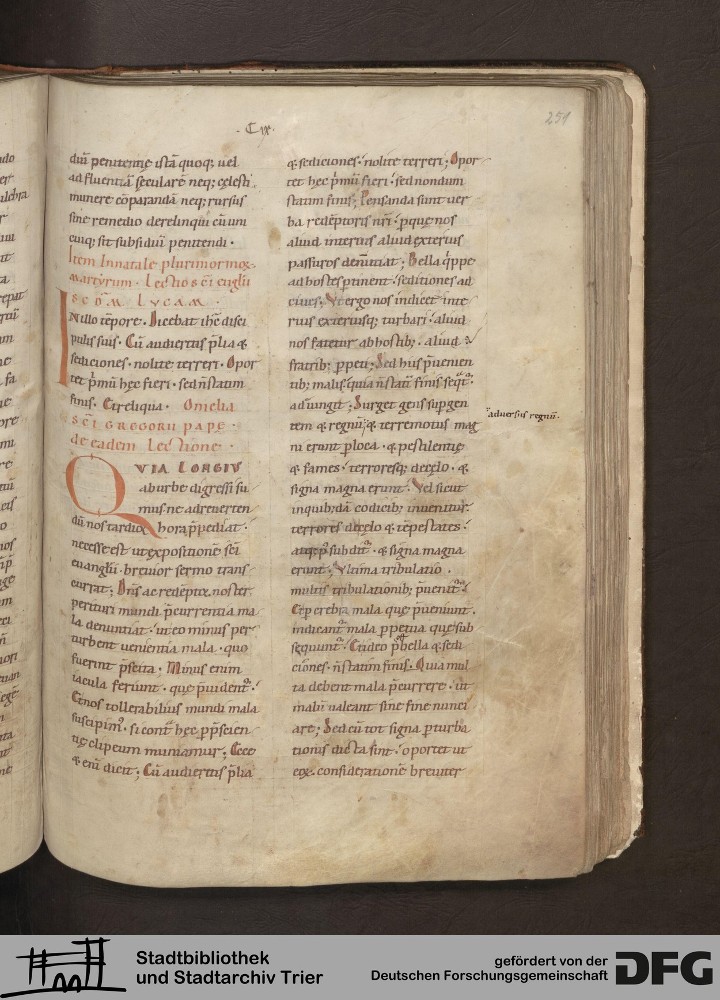 . C ıx .
251
diū penitentię ista quoq; uel
ad fluentiā seculare neq; cęlesti
munere cōparandā neq; rursus
sine remedio derelinqui cū um
cuiq; sit subsidiū penitendi.
Item In natale plurimorum
martyrum. Lectio sc̄i euglii
sc̄dm Lvcam.
In illo tēpore. Dicebat ihc̄ disci
pulis suis. Cū audieritis p̄lia &
sediciones. nolite terreri. Opor
tet p̄mū hęc fieri. sed n̄ statim
finis. Et reliqua. Omelia
sc̄i Gregorii pape.
de eadem Lectione.
QVIA LONGIVS
ab urbe digressi su
mus ne ad reuerten
dū nos tardior hora p̄pediat.
necesse est ut expositionē sc̄i
euanglii. breuior sermo trans
currat; Dn̄s ac redēptor noster
perituri mundi p̄currentia ma
la denuntiat. ut eo minus per
turbent uenientia mala. quo
fuerint p̄scita. Minus enim
iacula feriunt. quę p̄uidentr.
Et nos tollerabilius mundi mala
suscipimr. si contra hęc p̄ p̄scien
tię clipeum muniamur; Ecce
& eni dicit; Cū audieritis p̄lia
& sediciones. nolite terreri; Opor
tet hęc p̄mū fieri. sed nondum
statim finis; Pensanda sunt uer
ba redēptoris nr̄i. p que nos
aliud interius aliud exterius
passuros denūtiat; Bella q̄ppe
ad hostes p̄tinent. seditiones ad
ciues; Vt ergo nos indicet inte
rius exteriusq; turbari. aliud
nos fatetur ab hostib; aliud a
fratrib; p̄peti; Sed his p̄uenien
tib; malis quia n̄ statī finis seqtr.
adiungit; Surget gens sup gen
tem & regnū; & terremotus mag
ni erunt p loca. & pestilentię
& fames. terroresq; de cęlo. &
signa magna erunt. Vel sicut
in quib;dā codicib; inuenitur
terrores de cęlo & tēpestates.
atq; subditr. & signa magna
erunt; Vltima tribulatio.
multis tribulationib; p̄uenitr.
Et p crebra mala quę p̄ueniunt.
indicantr mala p̄petua quę sub
sequunt. Et ideo p bella & sedi
ciones. n̄ statim finis. Quia mul
ta debent mala p̄currere. ut
malū ualeant sine fine nunci
are; Sed cū tot signa p̄turba
tionis dicta sint. oportet ut
eor considerationē breuiter
aduersus regnū.
Stadtbibliothek
und Stadtarchiv Trier
gefördert von der
Deutschen Forschungsgemeinschaft
DFG